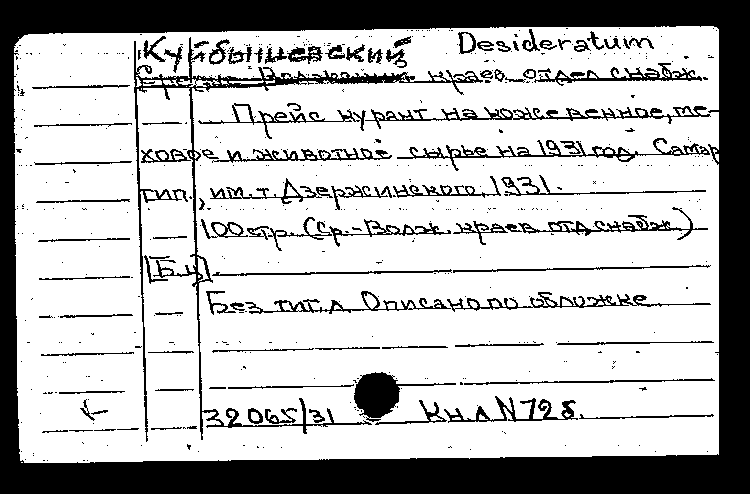 Куйбышевский Desideratum
Средне-Волжский краев. отдел снабж.
Прейс курант на кожевенное, ме-
ховое и животное сырье на 1931 год. Самар
тип., им. т. Дзержинского, 1931.
100 стр. (Ср.-Волж. краев. отд. снабж.)
[Б.ц].
Без тит.л. Описано по обложке
32065/31 Кн.л N 72 б.